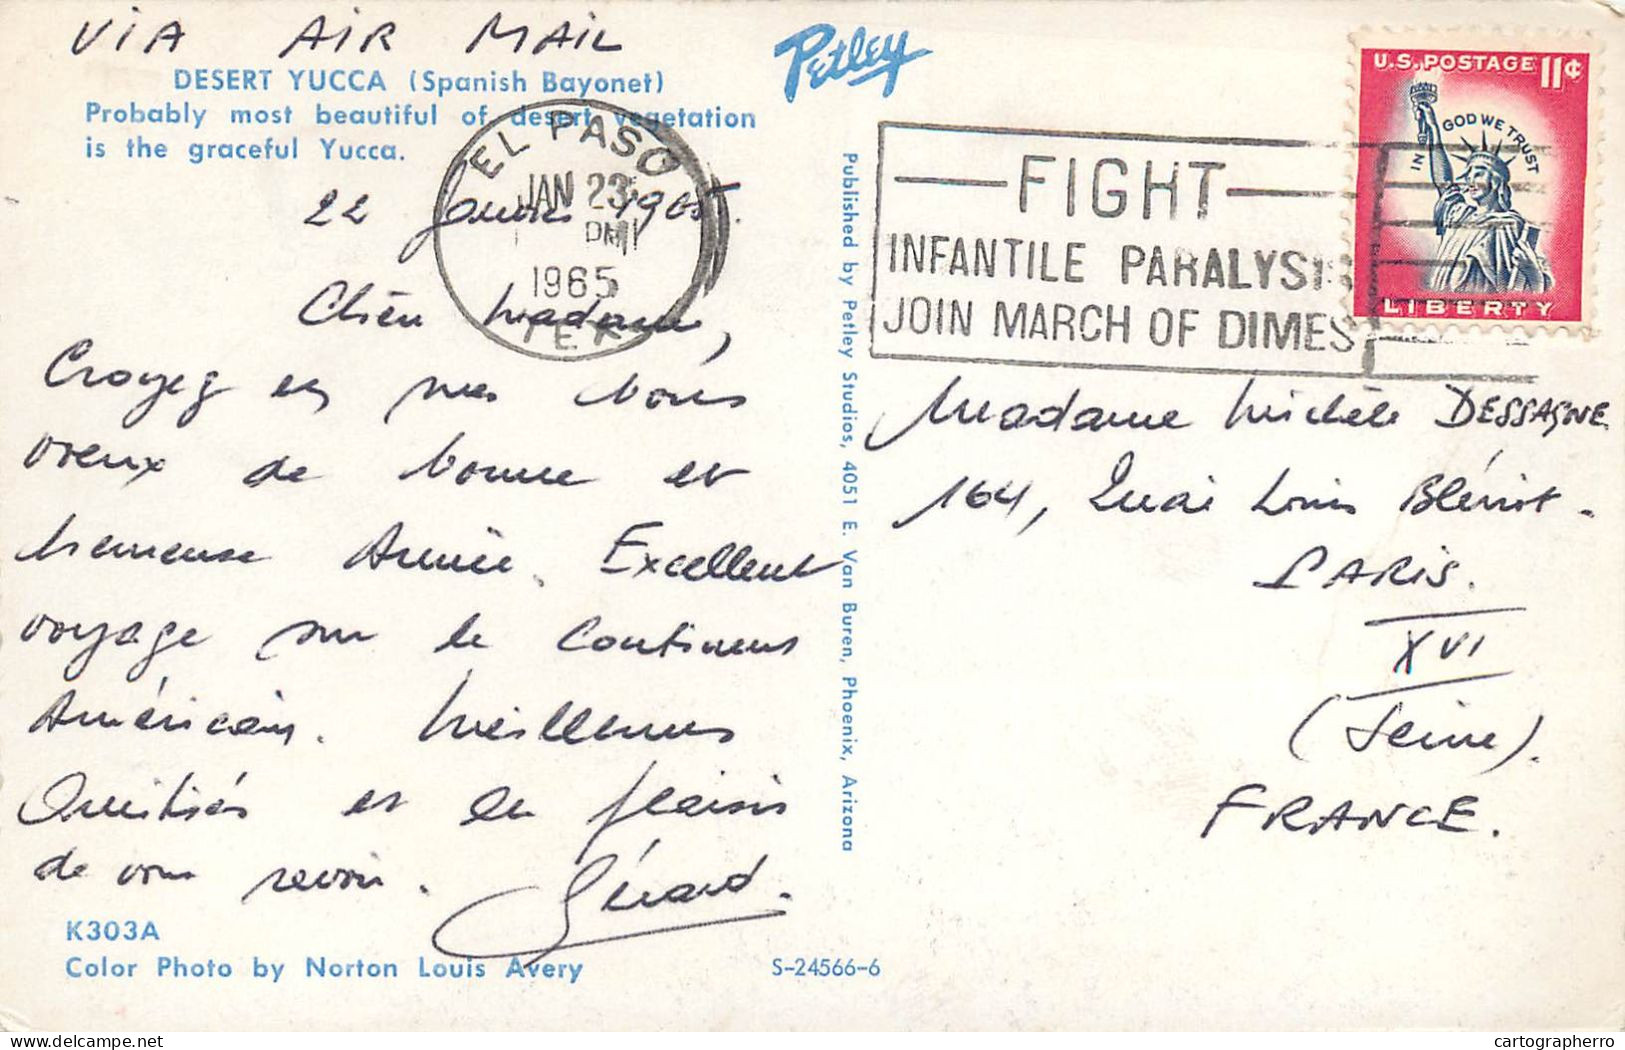 VIA AIR MAIL
DESERT YUCCA (Spanish Bayonet)
Probably most beautiful of desert vegetation
is the graceful Yucca.
22 Janvier 1965.
Chère Madame,
Croyez en mes bons
voeux de bonne et
heureuse Année. Excellent
voyage sur le Continent
Américain. Meilleures
Amitiés et au plaisir
de vous revoir.
Gérard.
K303A
Color Photo by Norton Louis Avery
S-24566-6
Petley
Published by Petley Studios, 4051 E. Van Buren, Phoenix, Arizona
EL PASO
JAN 23
PM
1965
TEX
FIGHT
INFANTILE PARALYSIS
JOIN MARCH OF DIMES
U.S. POSTAGE 11¢
IN GOD WE TRUST
LIBERTY
Madame Michèle DESSAGNE
164, Quai Louis Blériot.
PARIS.
XVI
(Seine).
FRANCE.
cartographerro